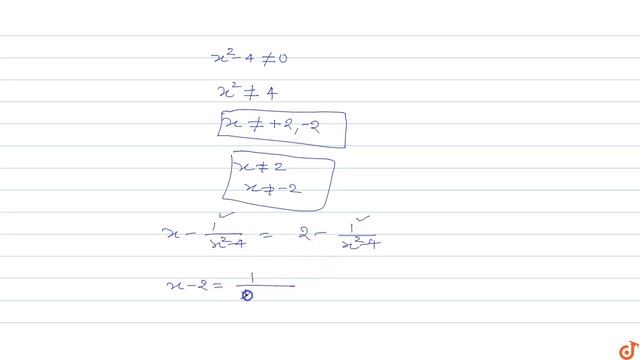 x² - 4 ≠ 0
x² ≠ 4
x ≠ +2, -2
x ≠ 2
x ≠ -2
x - 1/(x²-4) = 2 - 1/(x²-4)
x - 2 = 1/